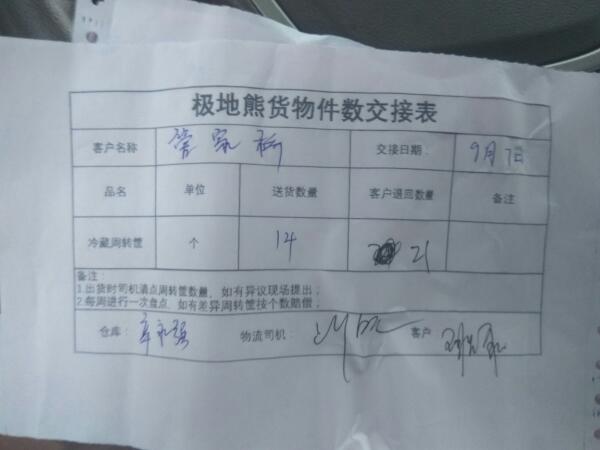 极地熊货物件数交接表
客户名称 管家桥 交接日期： 9月7日
品名 单位 送货数量 客户退回数量 备注
冷藏周转筐 个 14 21
备注：
1.出货时司机清点周转筐数量，如有异议现场提出；
2.每周进行一次盘点，如有差异周转筐按个数赔偿；
仓库： 物流司机： 客户